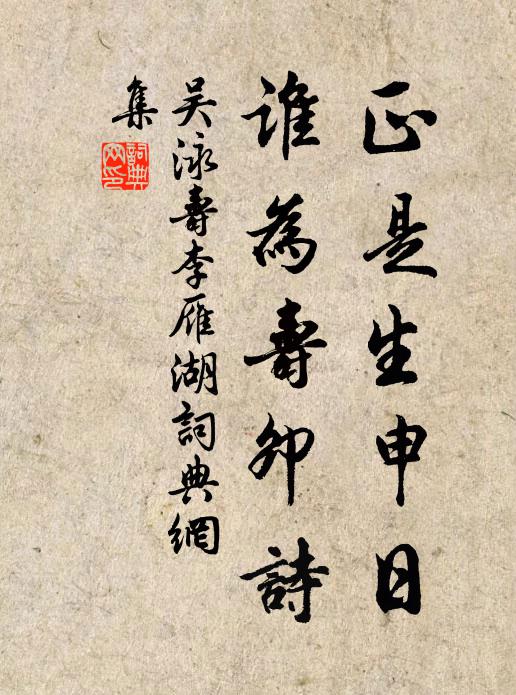 正是生申日
誰為壽卯詩
吳泳壽李雁湖詞典網
集
詞典
网印